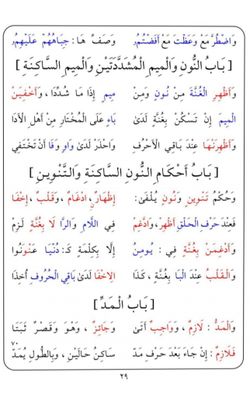 وَاضْطُرَّ مَعْ وَعَظْتَ مَعْ أَفَضْتُمُ وَصَفِّ هَا: جِبَاهُهُمْ عَلَيْهِمُ
[ بَابُ النُّونِ وَالْمِيمِ الْمُشَدَّدَتَيْنِ وَالْمِيمِ السَّاكِنَةِ ]
وَأَظْهِرِ الْغُنَّةَ مِنْ نُونٍ وَمِنْ مِيمٍ إِذَا مَا شُدِّدَا، وَأَخْفِيَنْ
الْمِيمَ إِنْ تَسْكُنْ بِغُنَّةٍ لَدَى بَاءٍ عَلَى الْمُخْتَارِ مِنْ أَهْلِ الْأَدَا
وَأَظْهِرَنْهَا عِنْدَ بَاقِي الْأَحْرُفِ وَاحْذَرْ لَدَى وَاوٍ وَفَا أَنْ تَخْتَفِي
[ بَابُ أَحْكَامِ النُّونِ السَّاكِنَةِ وَالتَّنْوِينِ ]
وَحُكْمُ تَنْوِينٍ وَنُونٍ يُلْفَى: إِظْهَارٌ، ادْغَامٌ، وَقَلْبٌ، إِخْفَا
فَعِنْدَ حَرْفِ الْحَلْقِ أَظْهِرْ، وَادَّغِمْ فِي اللَّامِ وَالرَّا لَا بِغُنَّةٍ لَزِمْ
وَأَدْغِمَنْ بِغُنَّةٍ فِي: يُومِنُ إِلَّا بِكِلْمَةٍ كَـ: دُنْيَا عَنْوَنُوا
وَالْقَلْبُ عِنْدَ الْبَا بِغُنَّةٍ، كَذَا الِاخْفَا لَدَى بَاقِي الْحُرُوفِ أُخِذَا
[ بَابُ الْمَدِّ ]
وَالْمَدُّ: لَازِمٌ، وَوَاجِبٌ أَتَى وَجَائِزٌ، وَهْوَ وَقَصْرٌ ثَبَتَا
فَلَازِمٌ: إِنْ جَاءَ بَعْدَ حَرْفِ مَدّ سَاكِنُ حَالَيْنِ، وَبِالطُّولِ يُمَدّ
٢٩